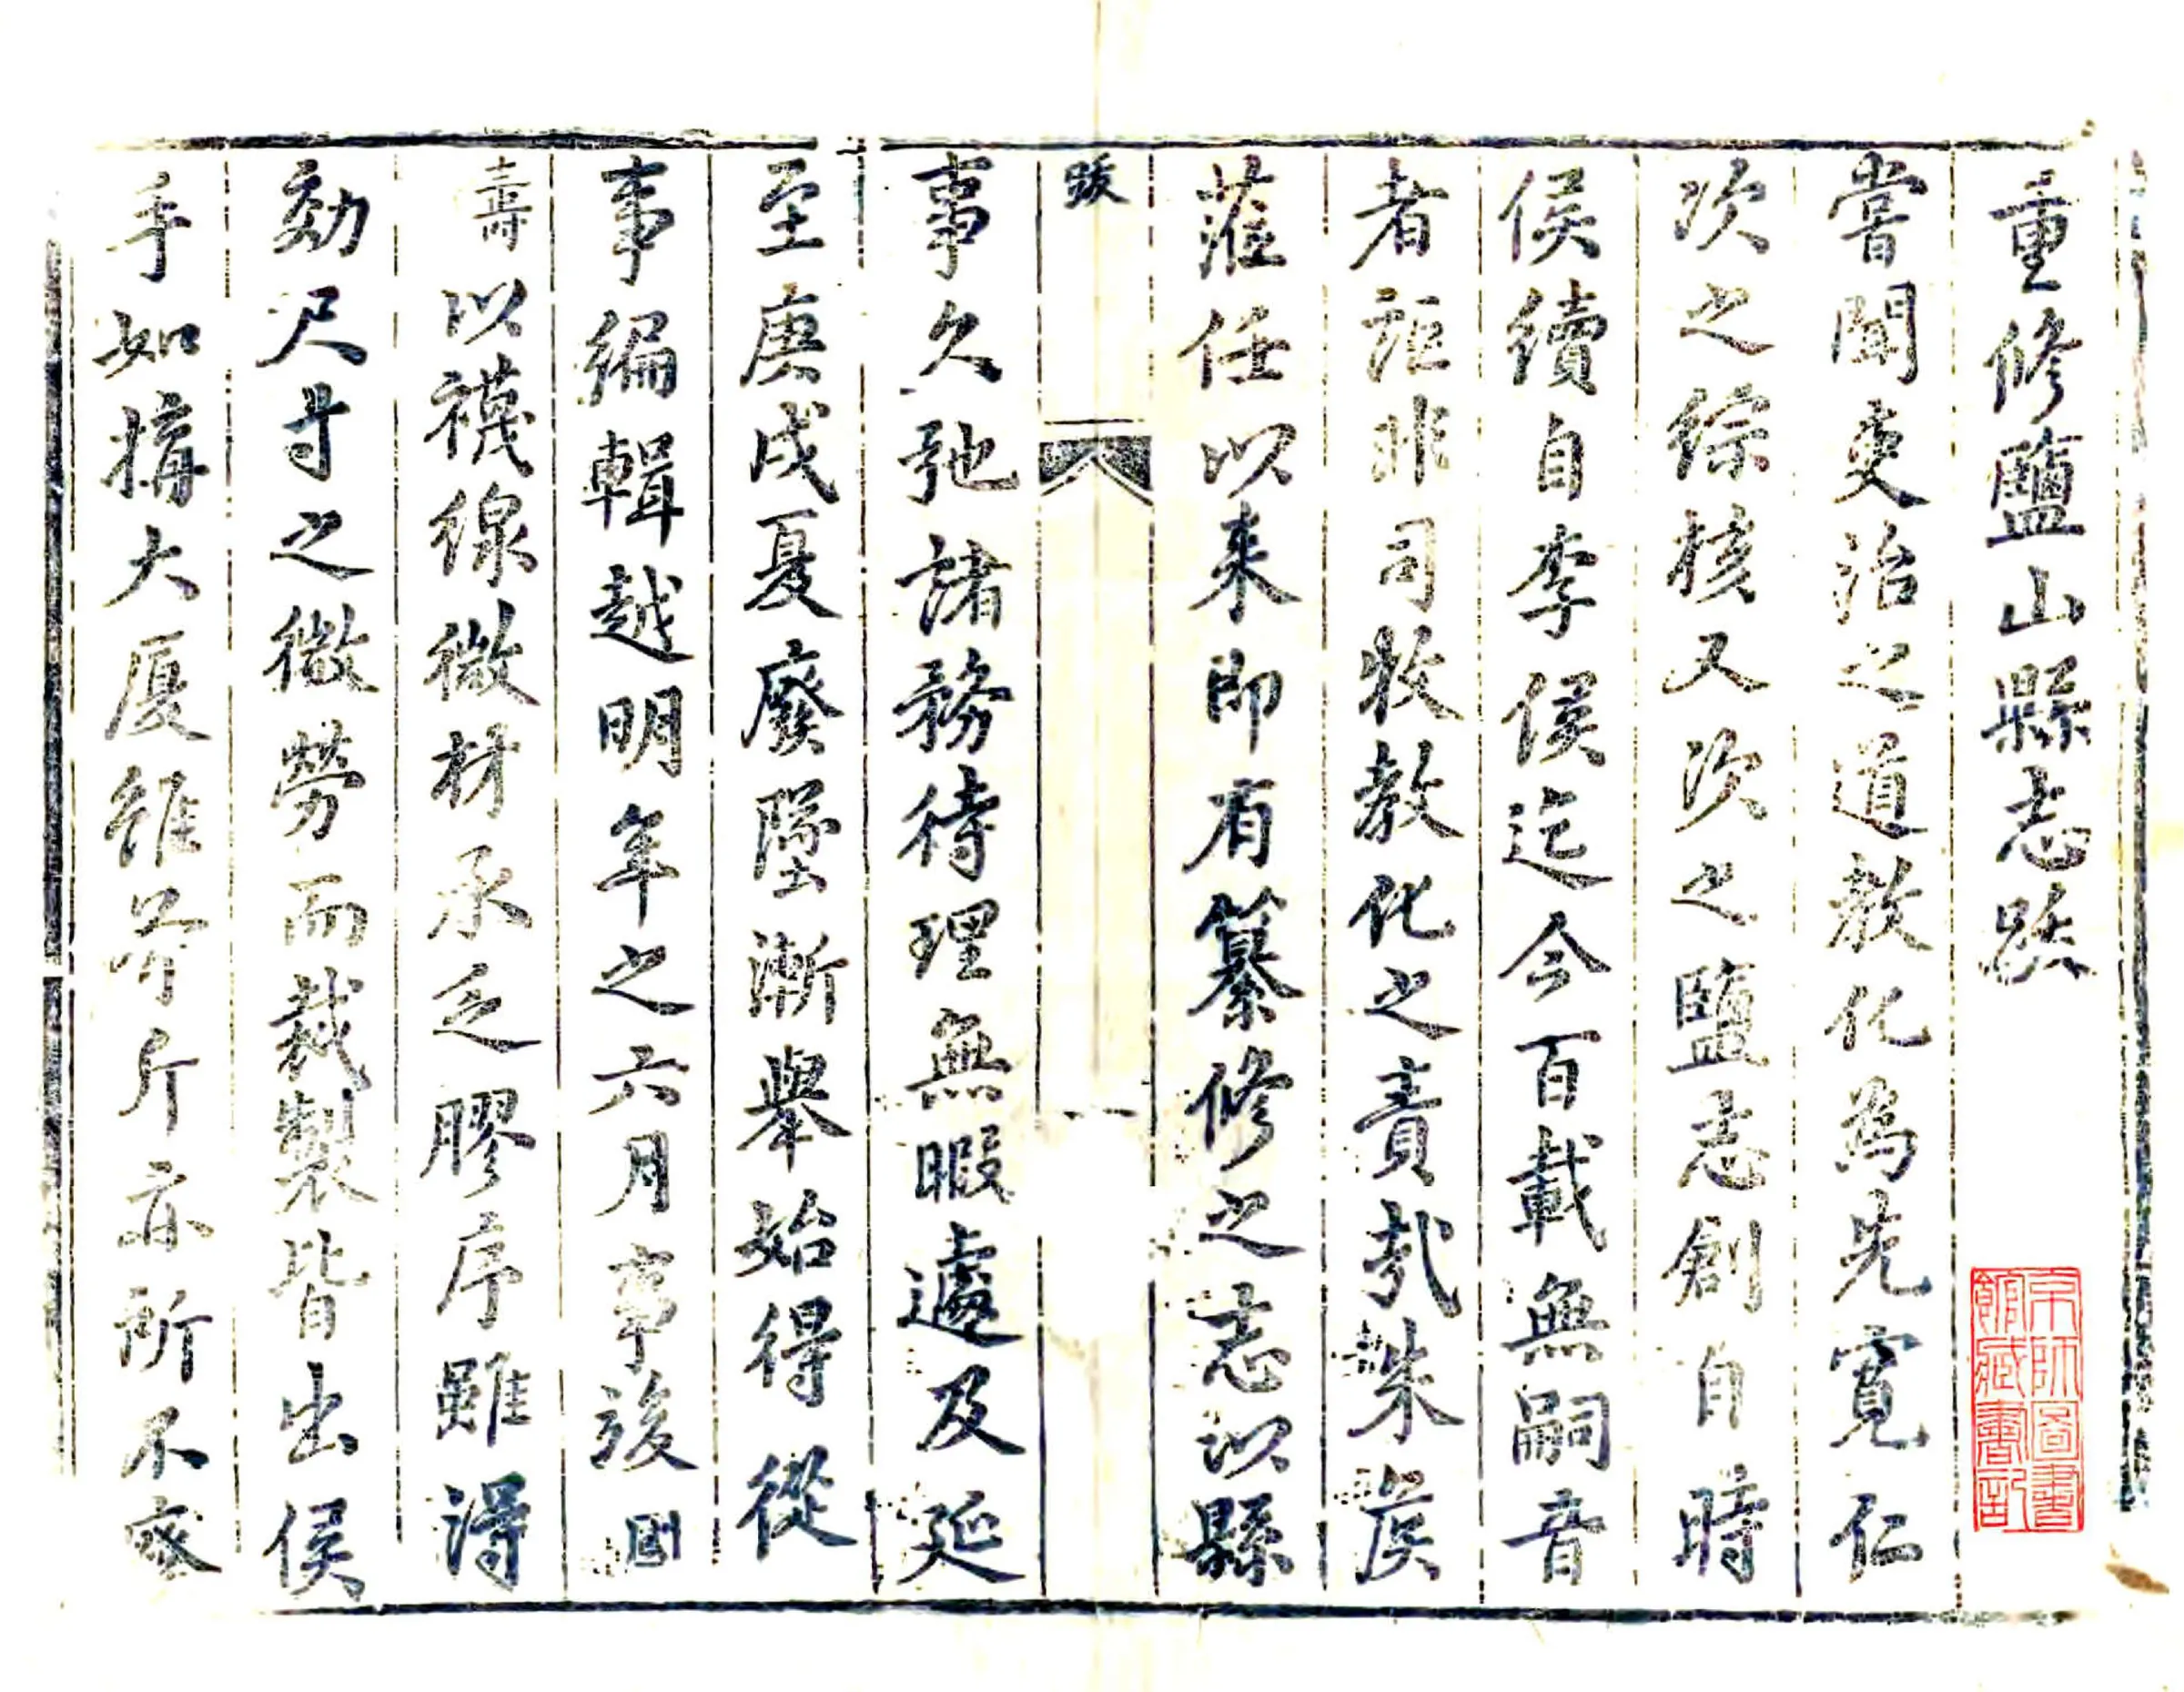 重修鹽山縣志跋
嘗聞吏治之道教化為先寬仁
次之綜核又次之鹽志創自時
侯續自李侯迄今百載無嗣音
者詎非司牧教化之責哉朱侯
蒞任以来即有纂修之志以縣
跋
事久弛諸務待理無暇遽及延
至庚戌夏廢墜漸舉始得從
事編輯越明年之六月事竣國
壽以襪線微材承乏膠序雖得
効尺寸之微勞而裁製皆出侯
手如搆大廈錐斧斤亦所不
京師圖書
館藏書記